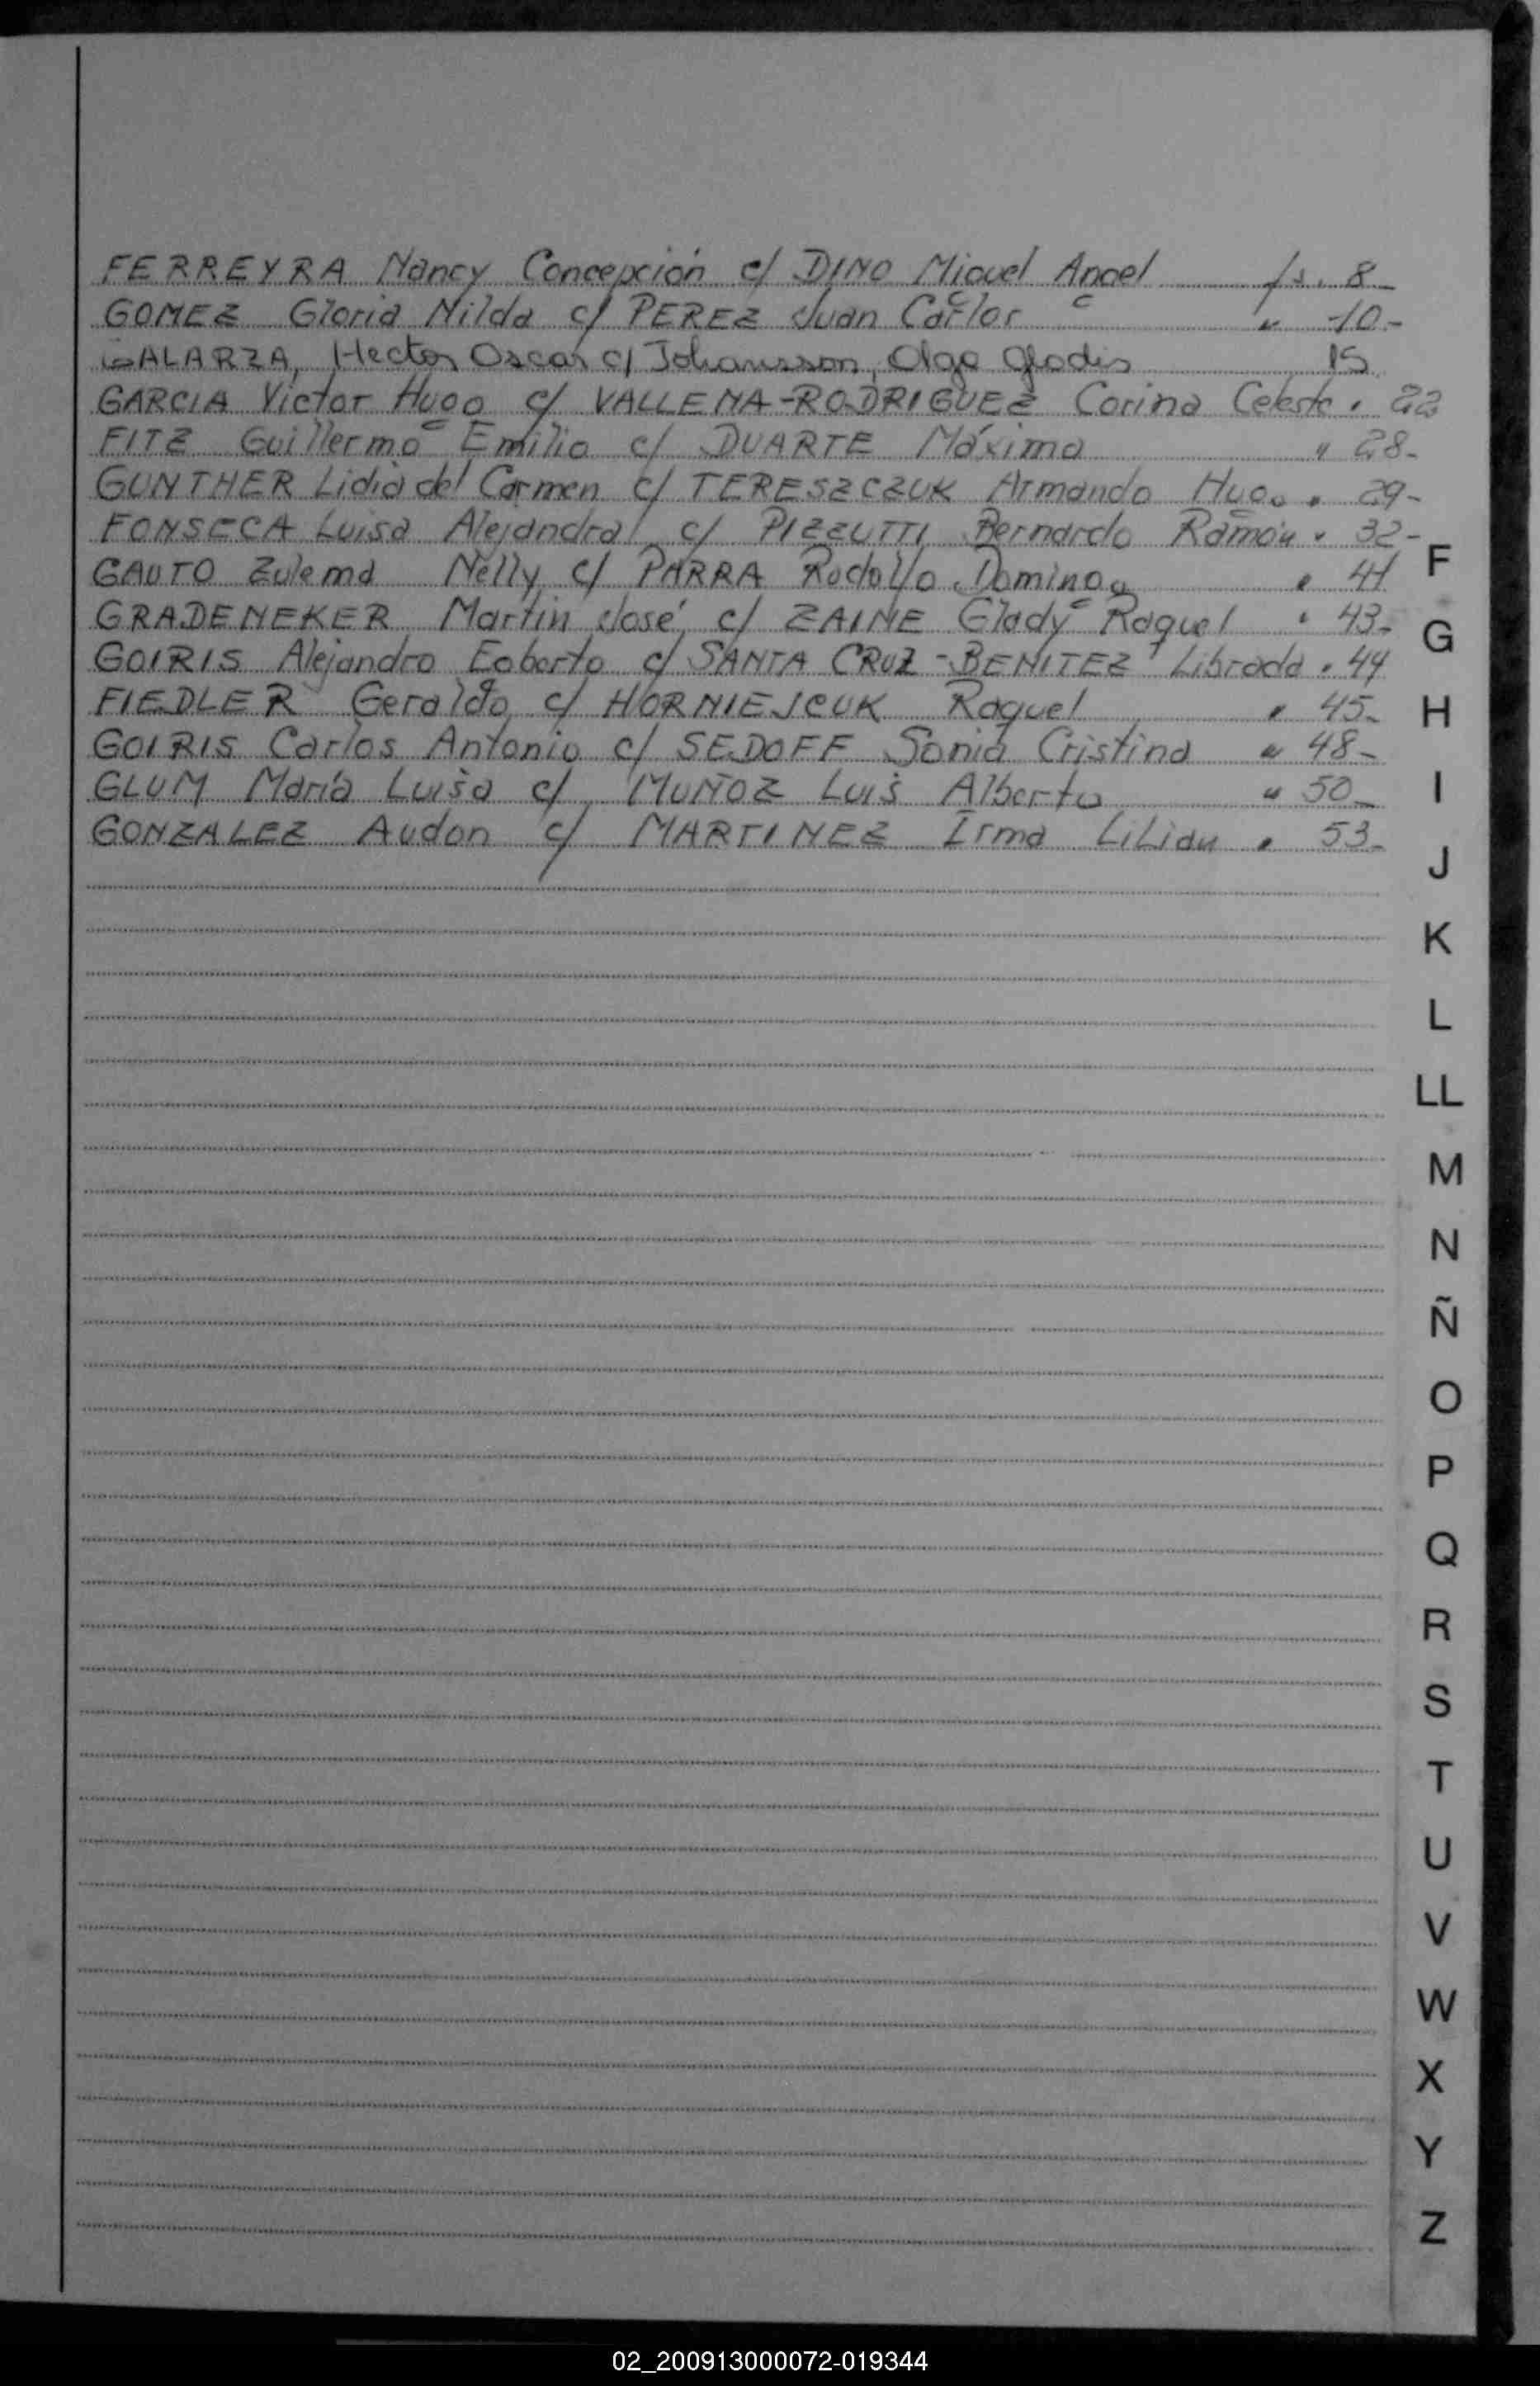 FERREYRA Nancy Concepción c/ DINO Miguel Angel fs. 8-
GOMEZ Gloria Nilda c/ PEREZ Juan Carlos " 10-
GALARZA, Hector Oscar c/ Johansson, Olga Gladis 15
GARCIA Victor Hugo c/ VALLENA-RODRIGUEZ Corina Celeste " 22
FITZ Guillermo Emilio c/ DUARTE Máxima " 28-
GUNTHER Lidia del Carmen c/ TERESZCZUK Armando Hugo " 29-
FONSECA Luisa Alejandra c/ PIZZUTTI Bernardo Ramón " 32-
GAUTO Zulema Nelly c/ PARRA Rodolfo Domingo " 41
GRADENEKER Martin José c/ ZAINE Glady Raquel " 43-
GOIRIS Alejandro Egberto c/ SANTA CRUZ-BENITEZ Librada " 44
FIEDLER Geraldo c/ HORNIEJCUK Raquel " 45-
GOIRIS Carlos Antonio c/ SEDOFF Sonia Cristina " 48-
GLUM María Luisa c/ MUÑOZ Luis Alberto " 50-
GONZALEZ Audon c/ MARTINEZ Irma LiLian " 53-
F
G
H
I
J
K
L
LL
M
N
Ñ
O
P
Q
R
S
T
U
V
W
X
Y
Z
02_200913000072-019344